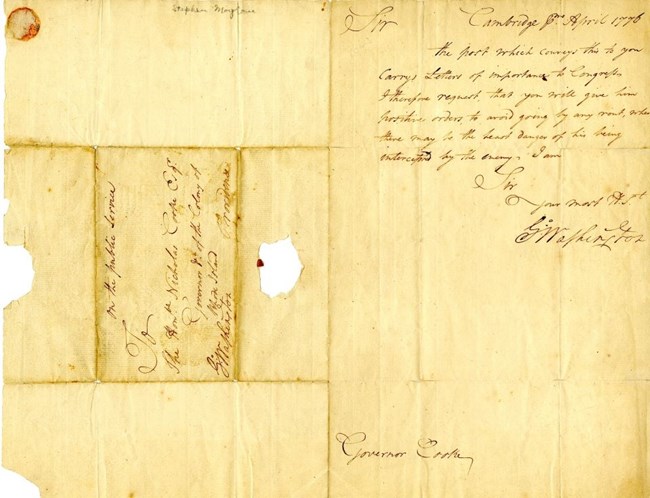 Stephen Moylan
Sir Cambridge 8th April 1776
the post which conveys this to you
Carrys Letters of importance to Congress
I therefore request that you will give him
positive orders to avoid going by any rout, where
there may be the least danger of his being
intercepted by the enemy. I am
Sir
your most H St
Go Washington
Governor Cooke
on the public Service
To
The Honble Nicholas Cooke Esqr
Governor &c of the Colony of
Rhode Island
Go Washington Providence